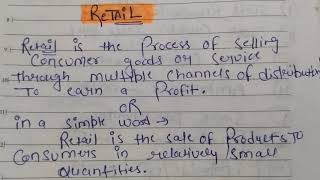 RETAIL
Retail is the Process of selling
Consumer goods or service
through multiple channels of distribution
To earn a Profit.
OR
in a simple word →
Retail is the sale of Products To
Consumers in relatively small
Quantities.